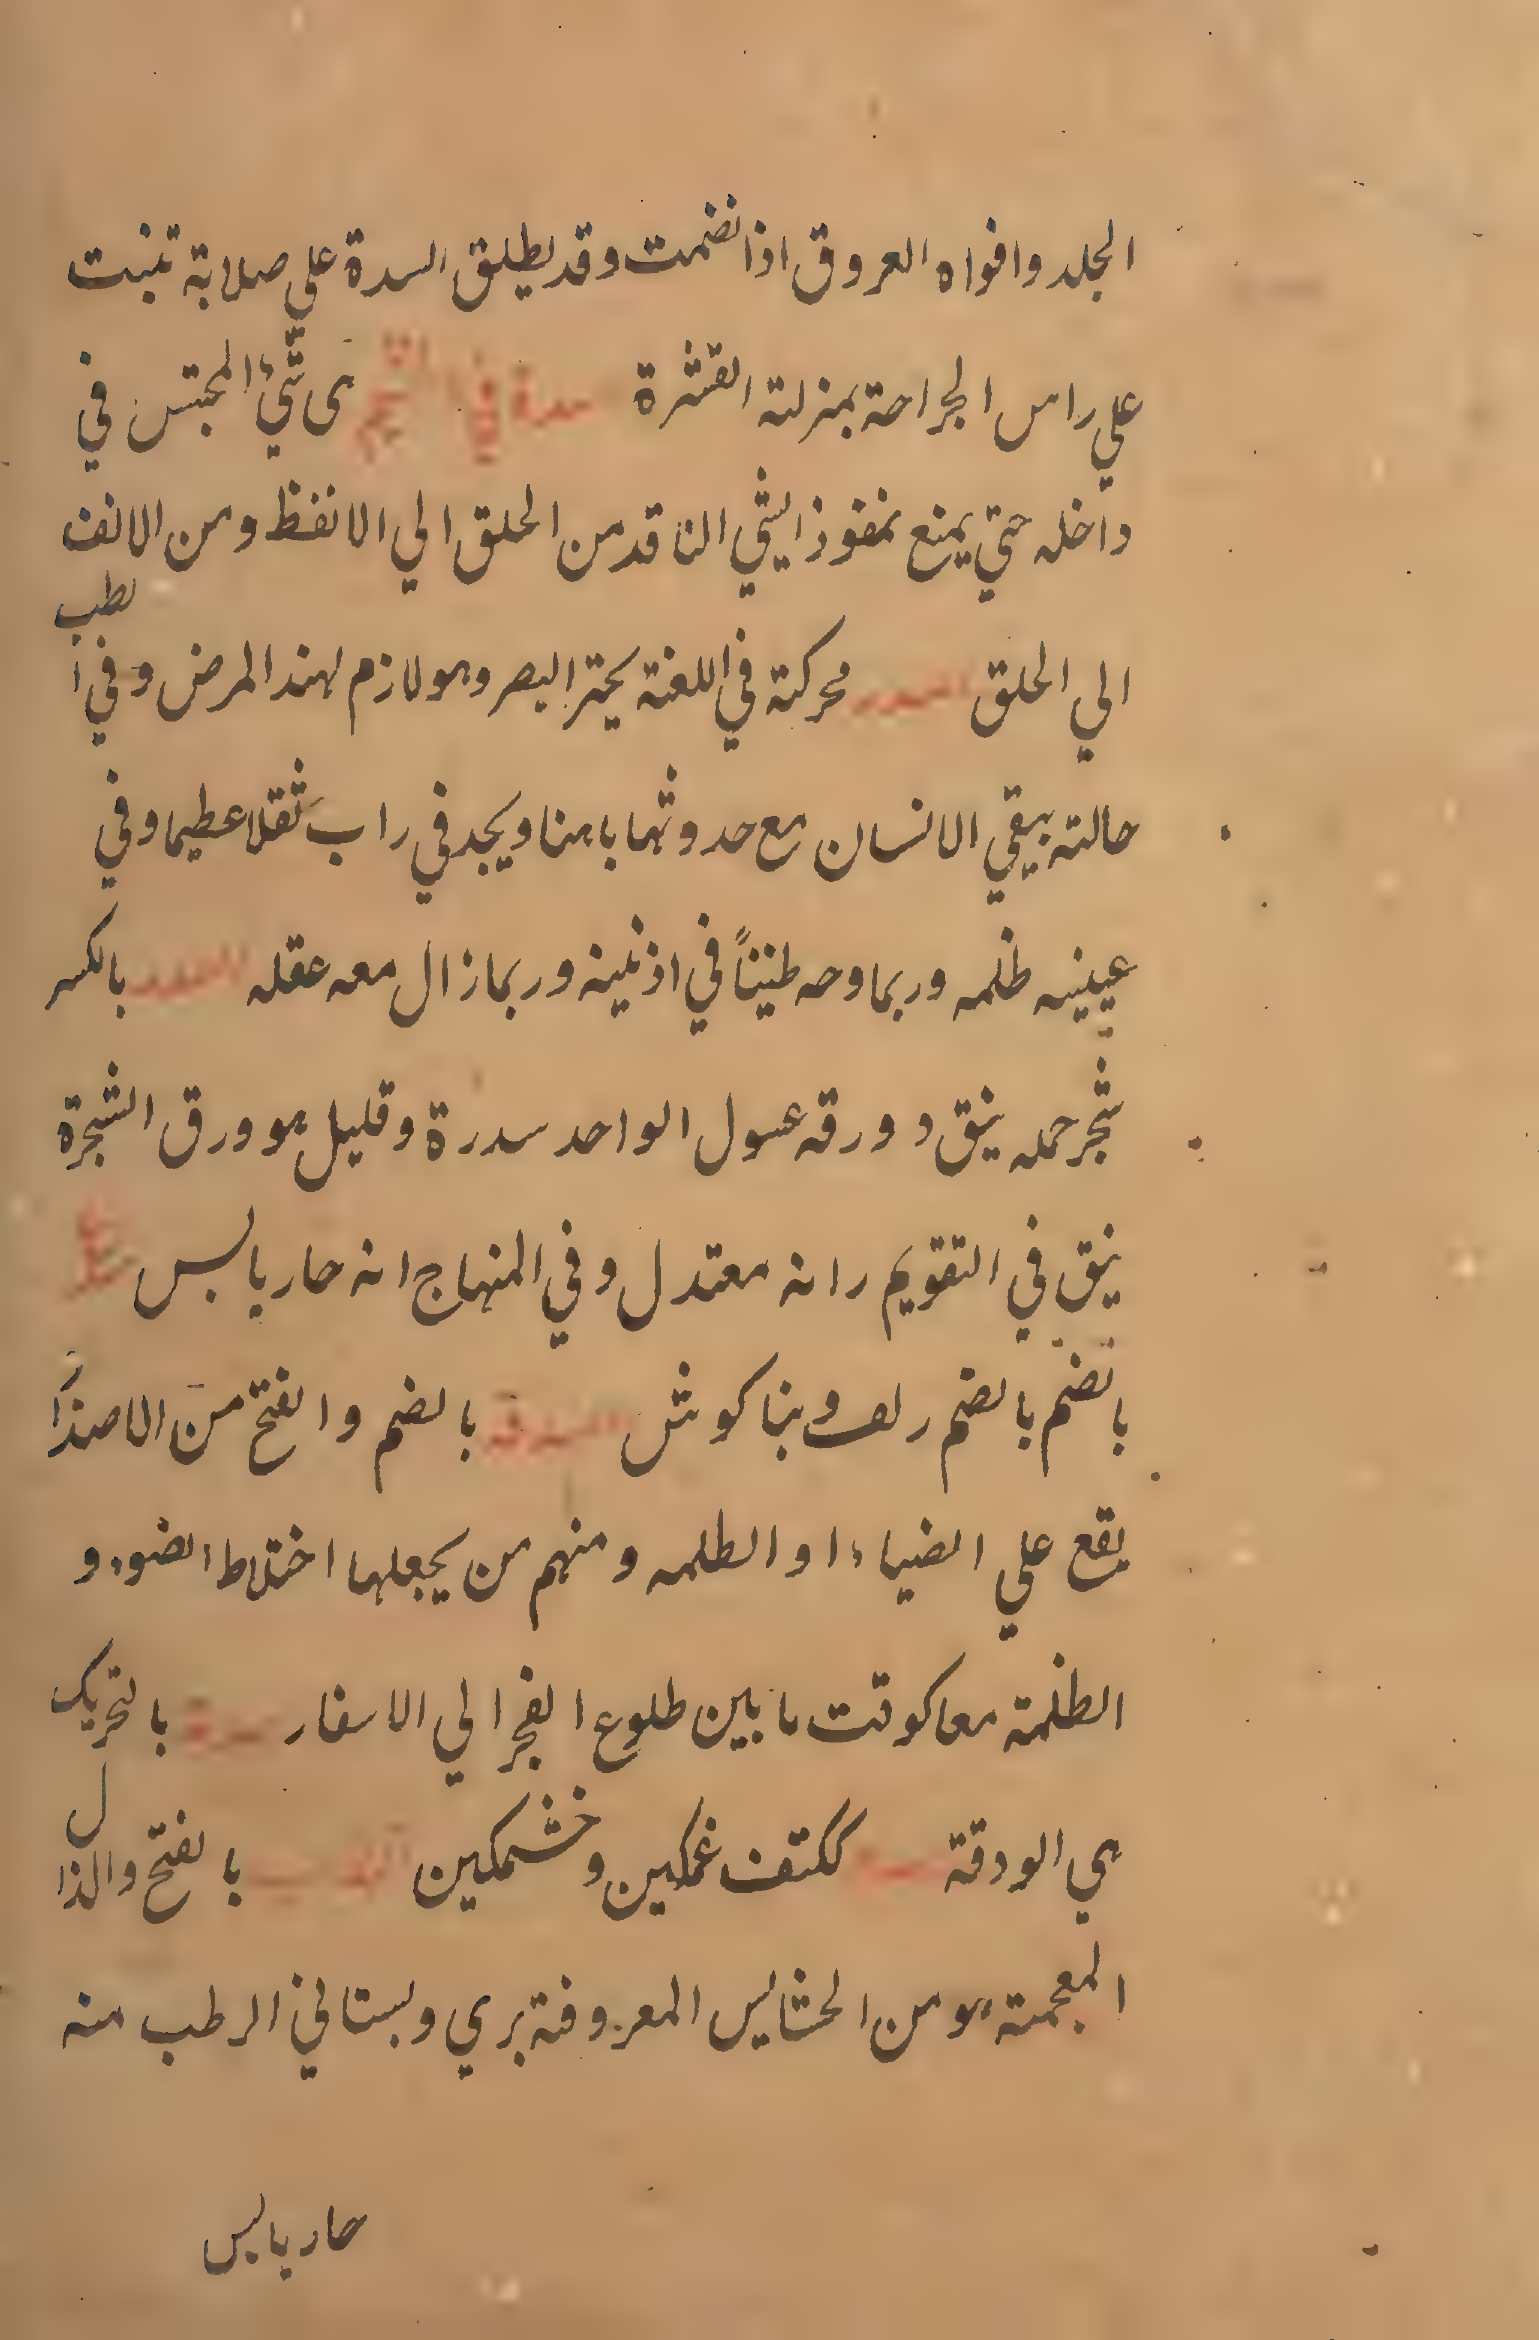 الجلد وافواه العروق اذا نضمت وقد يطلق السدة علي صلابة تنبت
علي راس الجراحة بمنزلته القشرة سدة في هى شيء المحتبس في
داخله حتي يمنع نمفوذ الشي الناقد من الحلق الي الانفظ ومن الانف
الي الحلق السدر محركته في اللغة يحتر البصر وهو لازم لهذا المرض وفي الطب
حالته يبقي الانسان مع حدوثها باهنا ويجد في راسه ثقلا عظيما وفي
عينيه ظلمه وربما وجه طنينًا في اذنينه وربما زال معه عقله السدر بالكسر
شجر حمله ينق و ورقه غسول الواحد سدرة وقليل هو ورق الشجرة
ينق في التقويم رانه معتدل وفي المنهاج انه حار يابس
بالضم بالضم زلف وبناكوش السدفة بالضم والفتح من الاصداد
يقع علي الضياء او الظلمه ومنهم من يجعلها اختلاط الضوء و
الظلمة معا كوقت ما بين طلوع الفجر الي الاسفار سدرة بالتحريك
هي الودقة ككتف غمكين وخشمكين السداب بالفتح والذال
المعجمة هو من الحشايس المعروفة بري وبستاني الرطب منه
حار يابس